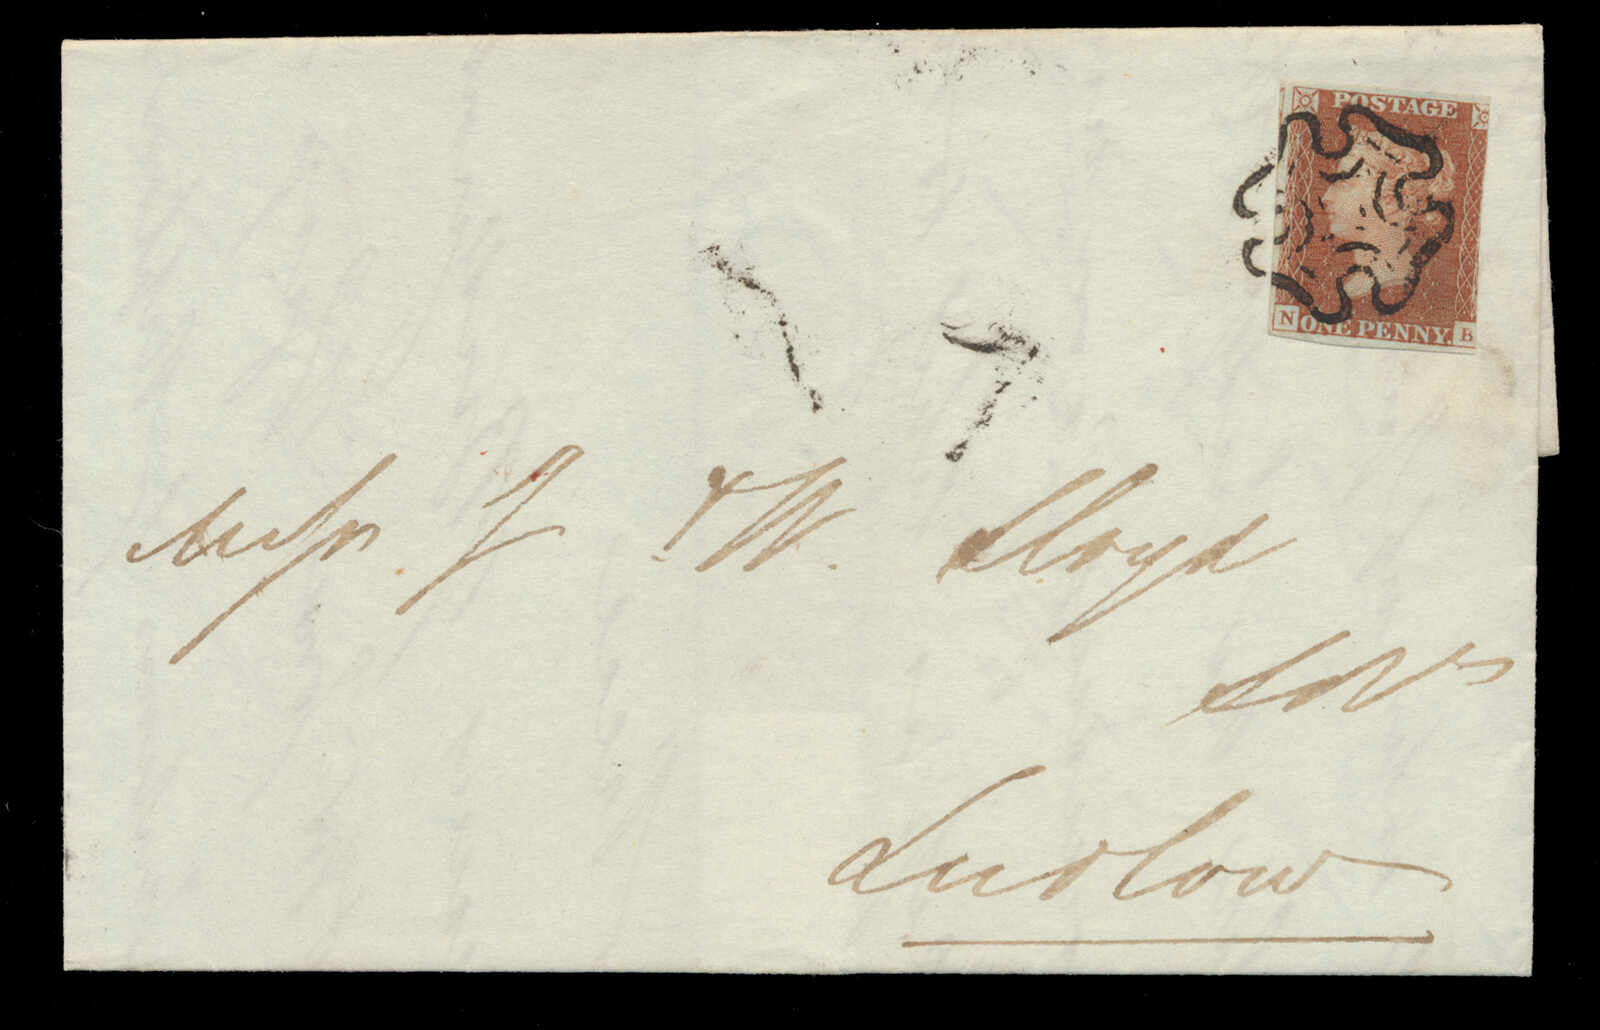 POSTAGE
N ONE PENNY. B
Messrs J & W. Lloyd
Ludlow